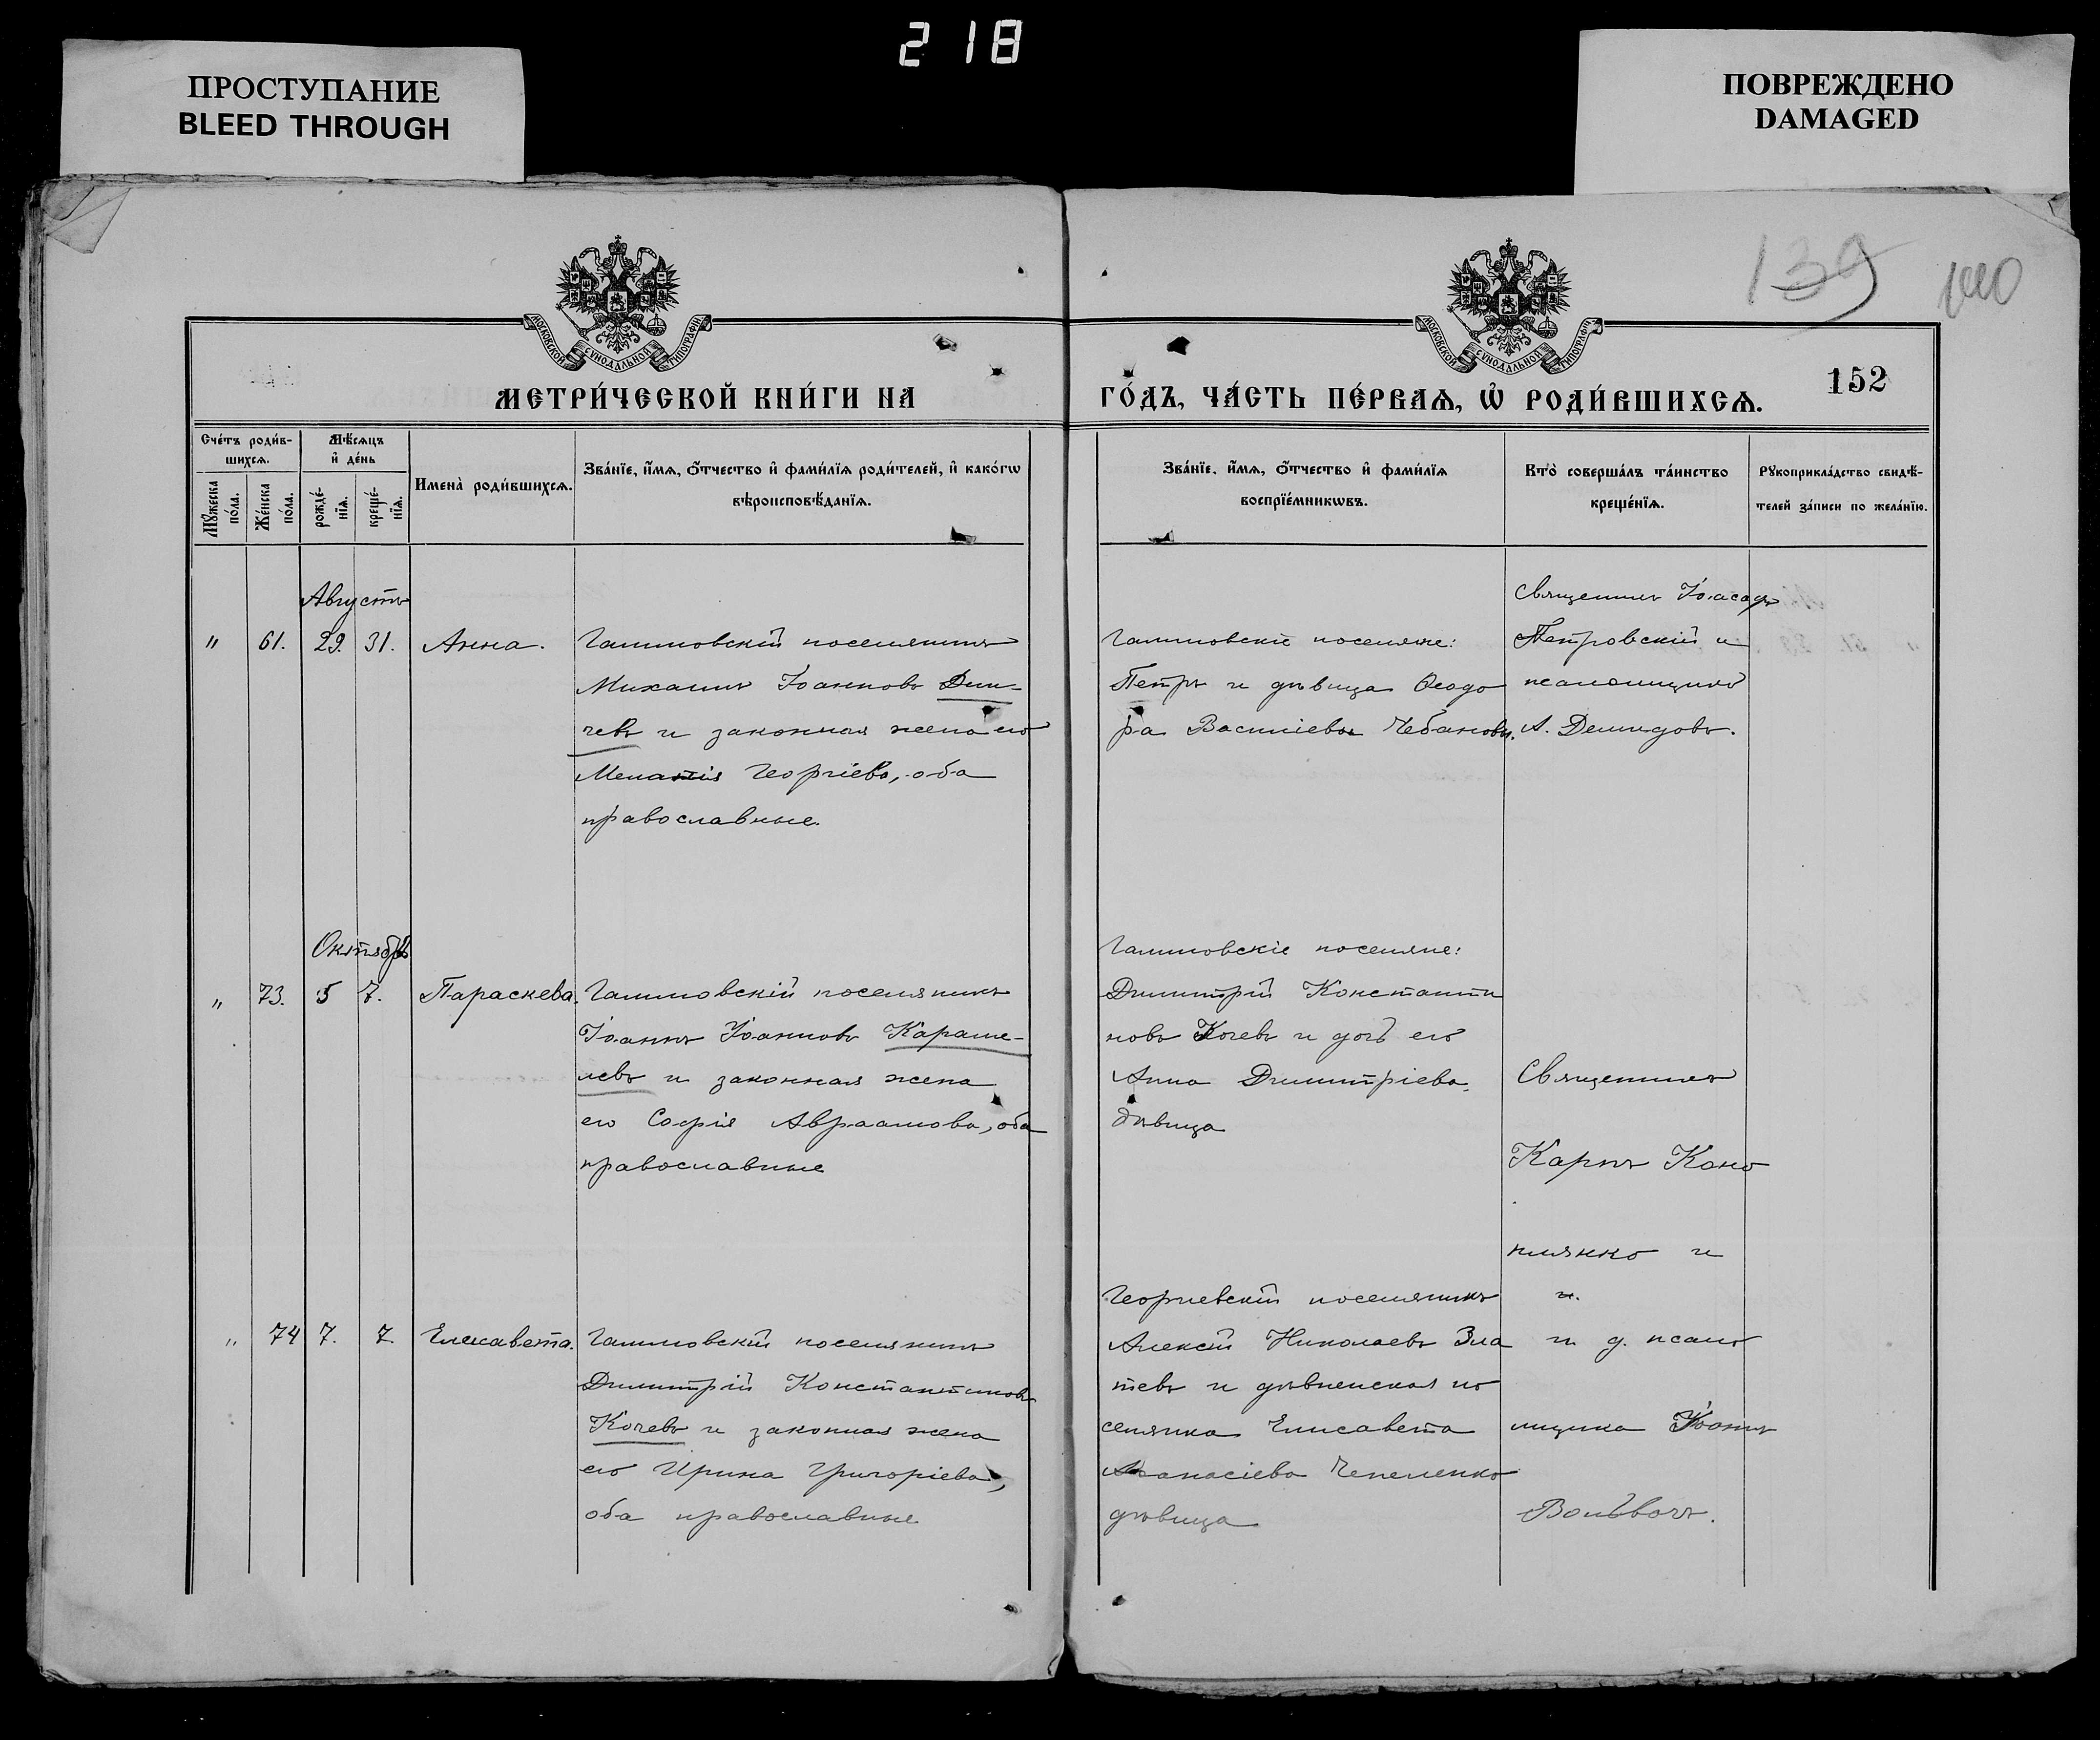 218
ПРОСТУПАНИЕ
BLEED THROUGH
ПОВРЕЖДЕНО
DAMAGED
139
140
МОСКОВСКОЙ СѴНОДАЛЬНОЙ ТИПОГРАФІИ
МОСКОВСКОЙ СѴНОДАЛЬНОЙ ТИПОГРАФІИ
МЕТРИ́ЧЕСКОЙ КНИ́ГИ НА
ГО́ДЪ, ЧА́СТЬ ПЕ́РВАѦ, Ѡ҆ РОДИ́ВШИХСѦ.
152
Сче́тъ роди́в-
шихсѧ.
Мꙋ́жеска по́ла.
Же́нска по́ла.
Мѣ́сѧцъ
и҆ де́нь
рожде́-
нїѧ.
креще́-
нїѧ.
Имена̀ роди́вшихсѧ.
Зва́нїе, и҆́мѧ, ѻ҆́тчество и҆ фами́лїѧ роди́телей, и҆ како́гѡ
вѣроисповѣ́данїѧ.
Зва́нїе, и҆́мѧ, ѻ҆́тчество и҆ фами́лїѧ
воспрїе́мникѡвъ.
Кто̀ соверша́лъ та́инство
креще́нїѧ.
Рꙋкоприкла́дство свидѣ́-
телей за́писи по жела́нїю.
Августъ
" 61. 29. 31. Анна.
Галицовскій поселянинъ
Михаилъ Іоанновъ Дим-
чевъ и законная жена его
Мелатія Георгіева, оба
православные.
Галицовскіе поселяне:
Петръ и дѣвица Ѳеодо
ра Василіевы Чебановы.
Священникъ Іоасафъ
Петровскій и
псаломщикъ
А. Демидовъ.
Октябрь
" 73. 5 7. Параскева.
Галицовскій поселянинъ
Іоаннъ Іоанновъ Караме-
левъ и законная жена
его Софія Авраамова, оба
православные
Галицовскіе поселяне:
Димитрій Константи
новъ Кочевъ и дочь его
Анна Димитріева,
дѣвица
Священникъ
Карпъ Коно
плянко и
и.
" 74 7. 7. Елисавета.
Галицовскій поселянинъ
Димитрій Константиновъ
Кочевъ и законная жена
его Ирина Григоріева,
оба православные
Георгіевскій поселянинъ
Алексій Николаевъ Зла
тевъ и дѣвиенская по
селянка Елисавета
Аѳанасіева Чепеленко
дѣвица
и. д. псало
мщика Іоаннъ